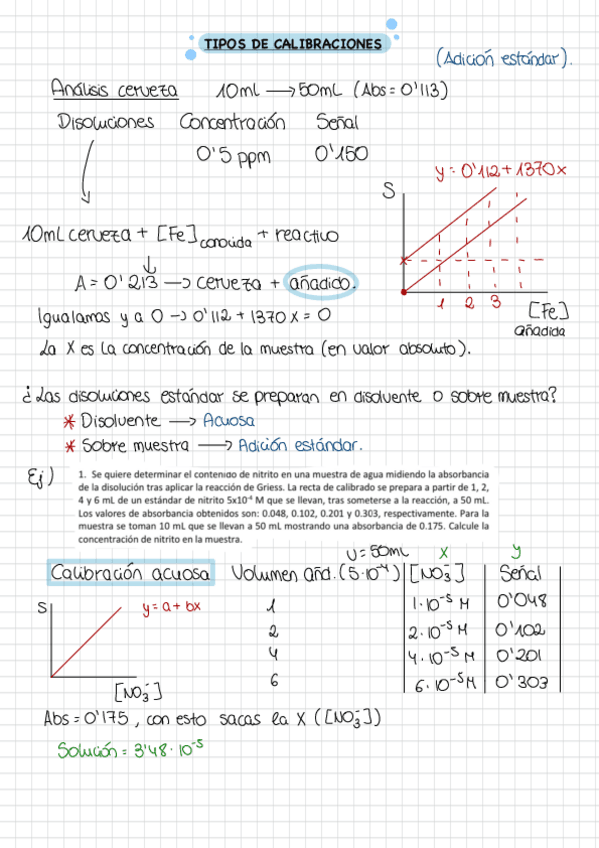 TIPOS DE CALIBRACIONES
(Adición estándar).
Análisis cerveza 10mL → 50mL (Abs = 0'113)
Disoluciones Concentración Señal
0'5 ppm 0'150
y = 0'112 + 1370x
S
10mL cerveza + [Fe]conocida + reactivo
A = 0'213 → cerveza + añadido.
1 2 3 [Fe]
añadida
Igualamos y a 0 → 0'112 + 1370 x = 0
La X es la concentración de la muestra (en valor absoluto).
¿Las disoluciones estándar se preparan en disolvente o sobre muestra?
* Disolvente → Acuosa
* Sobre muestra → Adición estándar.
Ej)
1. Se quiere determinar el contenido de nitrito en una muestra de agua midiendo la absorbancia
de la disolución tras aplicar la reacción de Griess. La recta de calibrado se prepara a partir de 1, 2,
4 y 6 mL de un estándar de nitrito 5x10⁻⁴ M que se llevan, tras someterse a la reacción, a 50 mL.
Los valores de absorbancia obtenidos son: 0.048, 0.102, 0.201 y 0.303, respectivamente. Para la
muestra se toman 10 mL que se llevan a 50 mL mostrando una absorbancia de 0.175. Calcule la
concentración de nitrito en la muestra.
V = 50mL x y
Calibración acuosa Volumen añd. (5·10⁻⁴) [NO₃⁻] Señal
S y = a + bx 1 1·10⁻⁵ M 0'048
2 2·10⁻⁵ M 0'102
4 4·10⁻⁵ M 0'201
6 6·10⁻⁵ M 0'303
[NO₃⁻]
Abs = 0'175, con esto sacas la X ([NO₃⁻])
Solución = 3'48·10⁻⁵